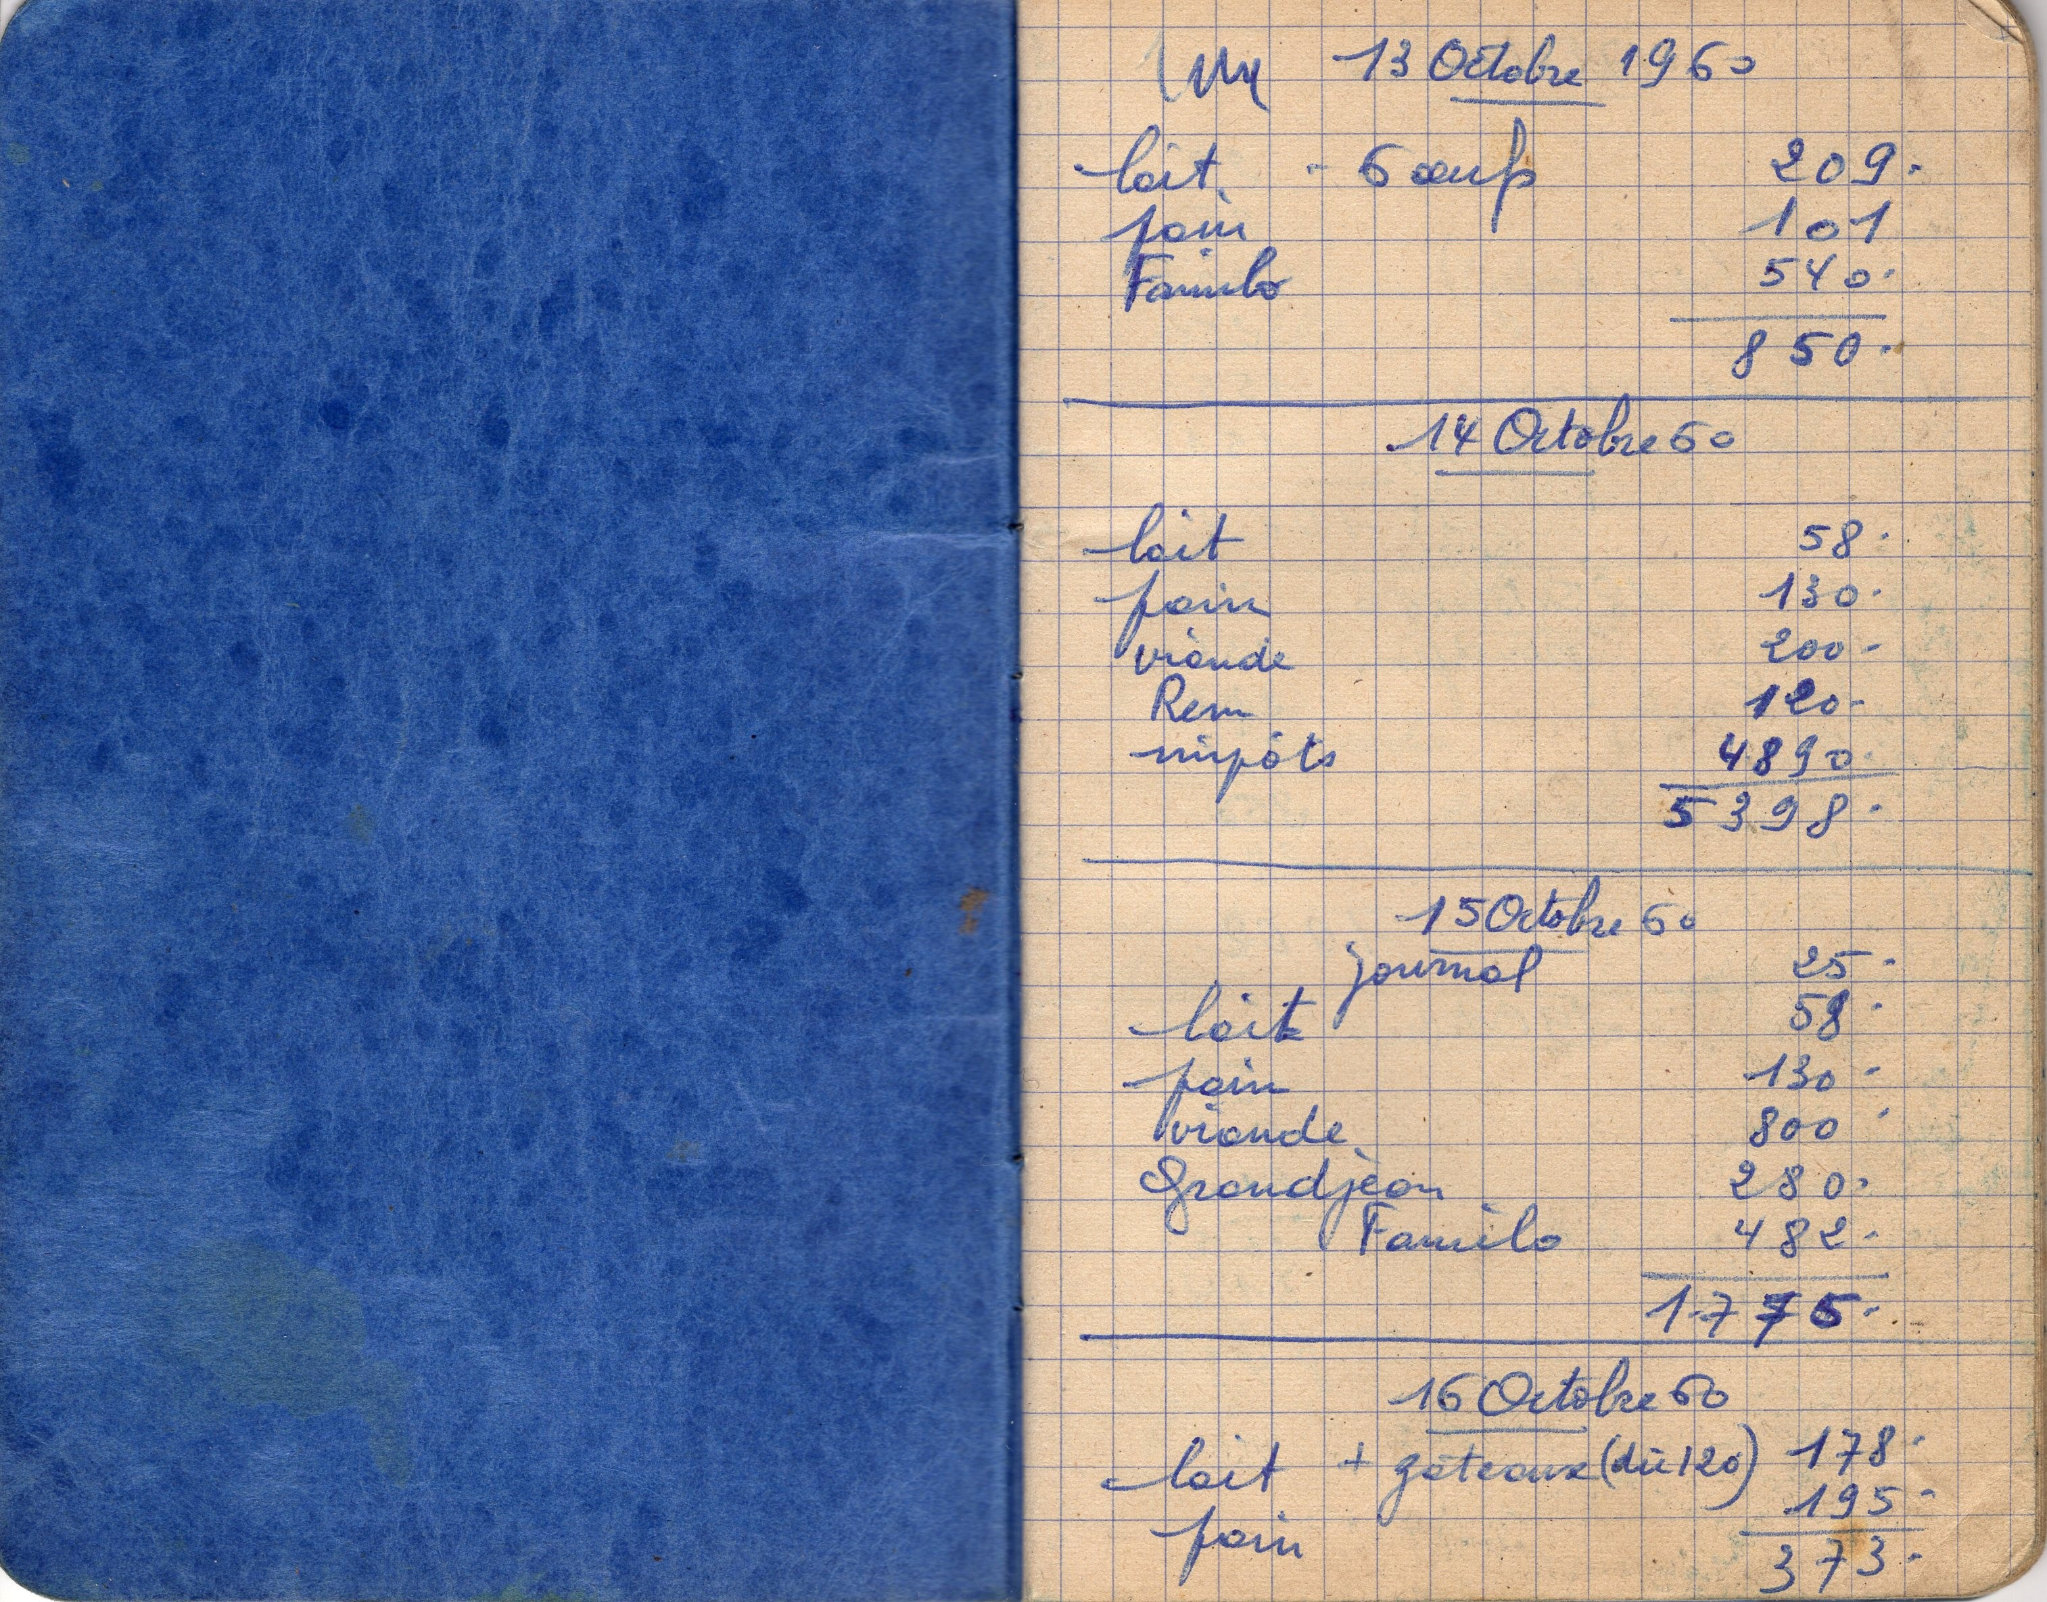 13 Octobre 1960
lait - 6 œufs 209.
pain 101
Familo 540.
850.
14 Octobre 60
lait 58.
pain 130.
viande 200-
Rem 120-
impôts 4890.
5398.
15 Octobre 60
journal 25-
lait 58.
pain 130-
viande 800
Grandjean 280.
Familo 482.
1775.
16 Octobre 60
lait + gâteaux (dû 120) 178.
pain 195-
373.